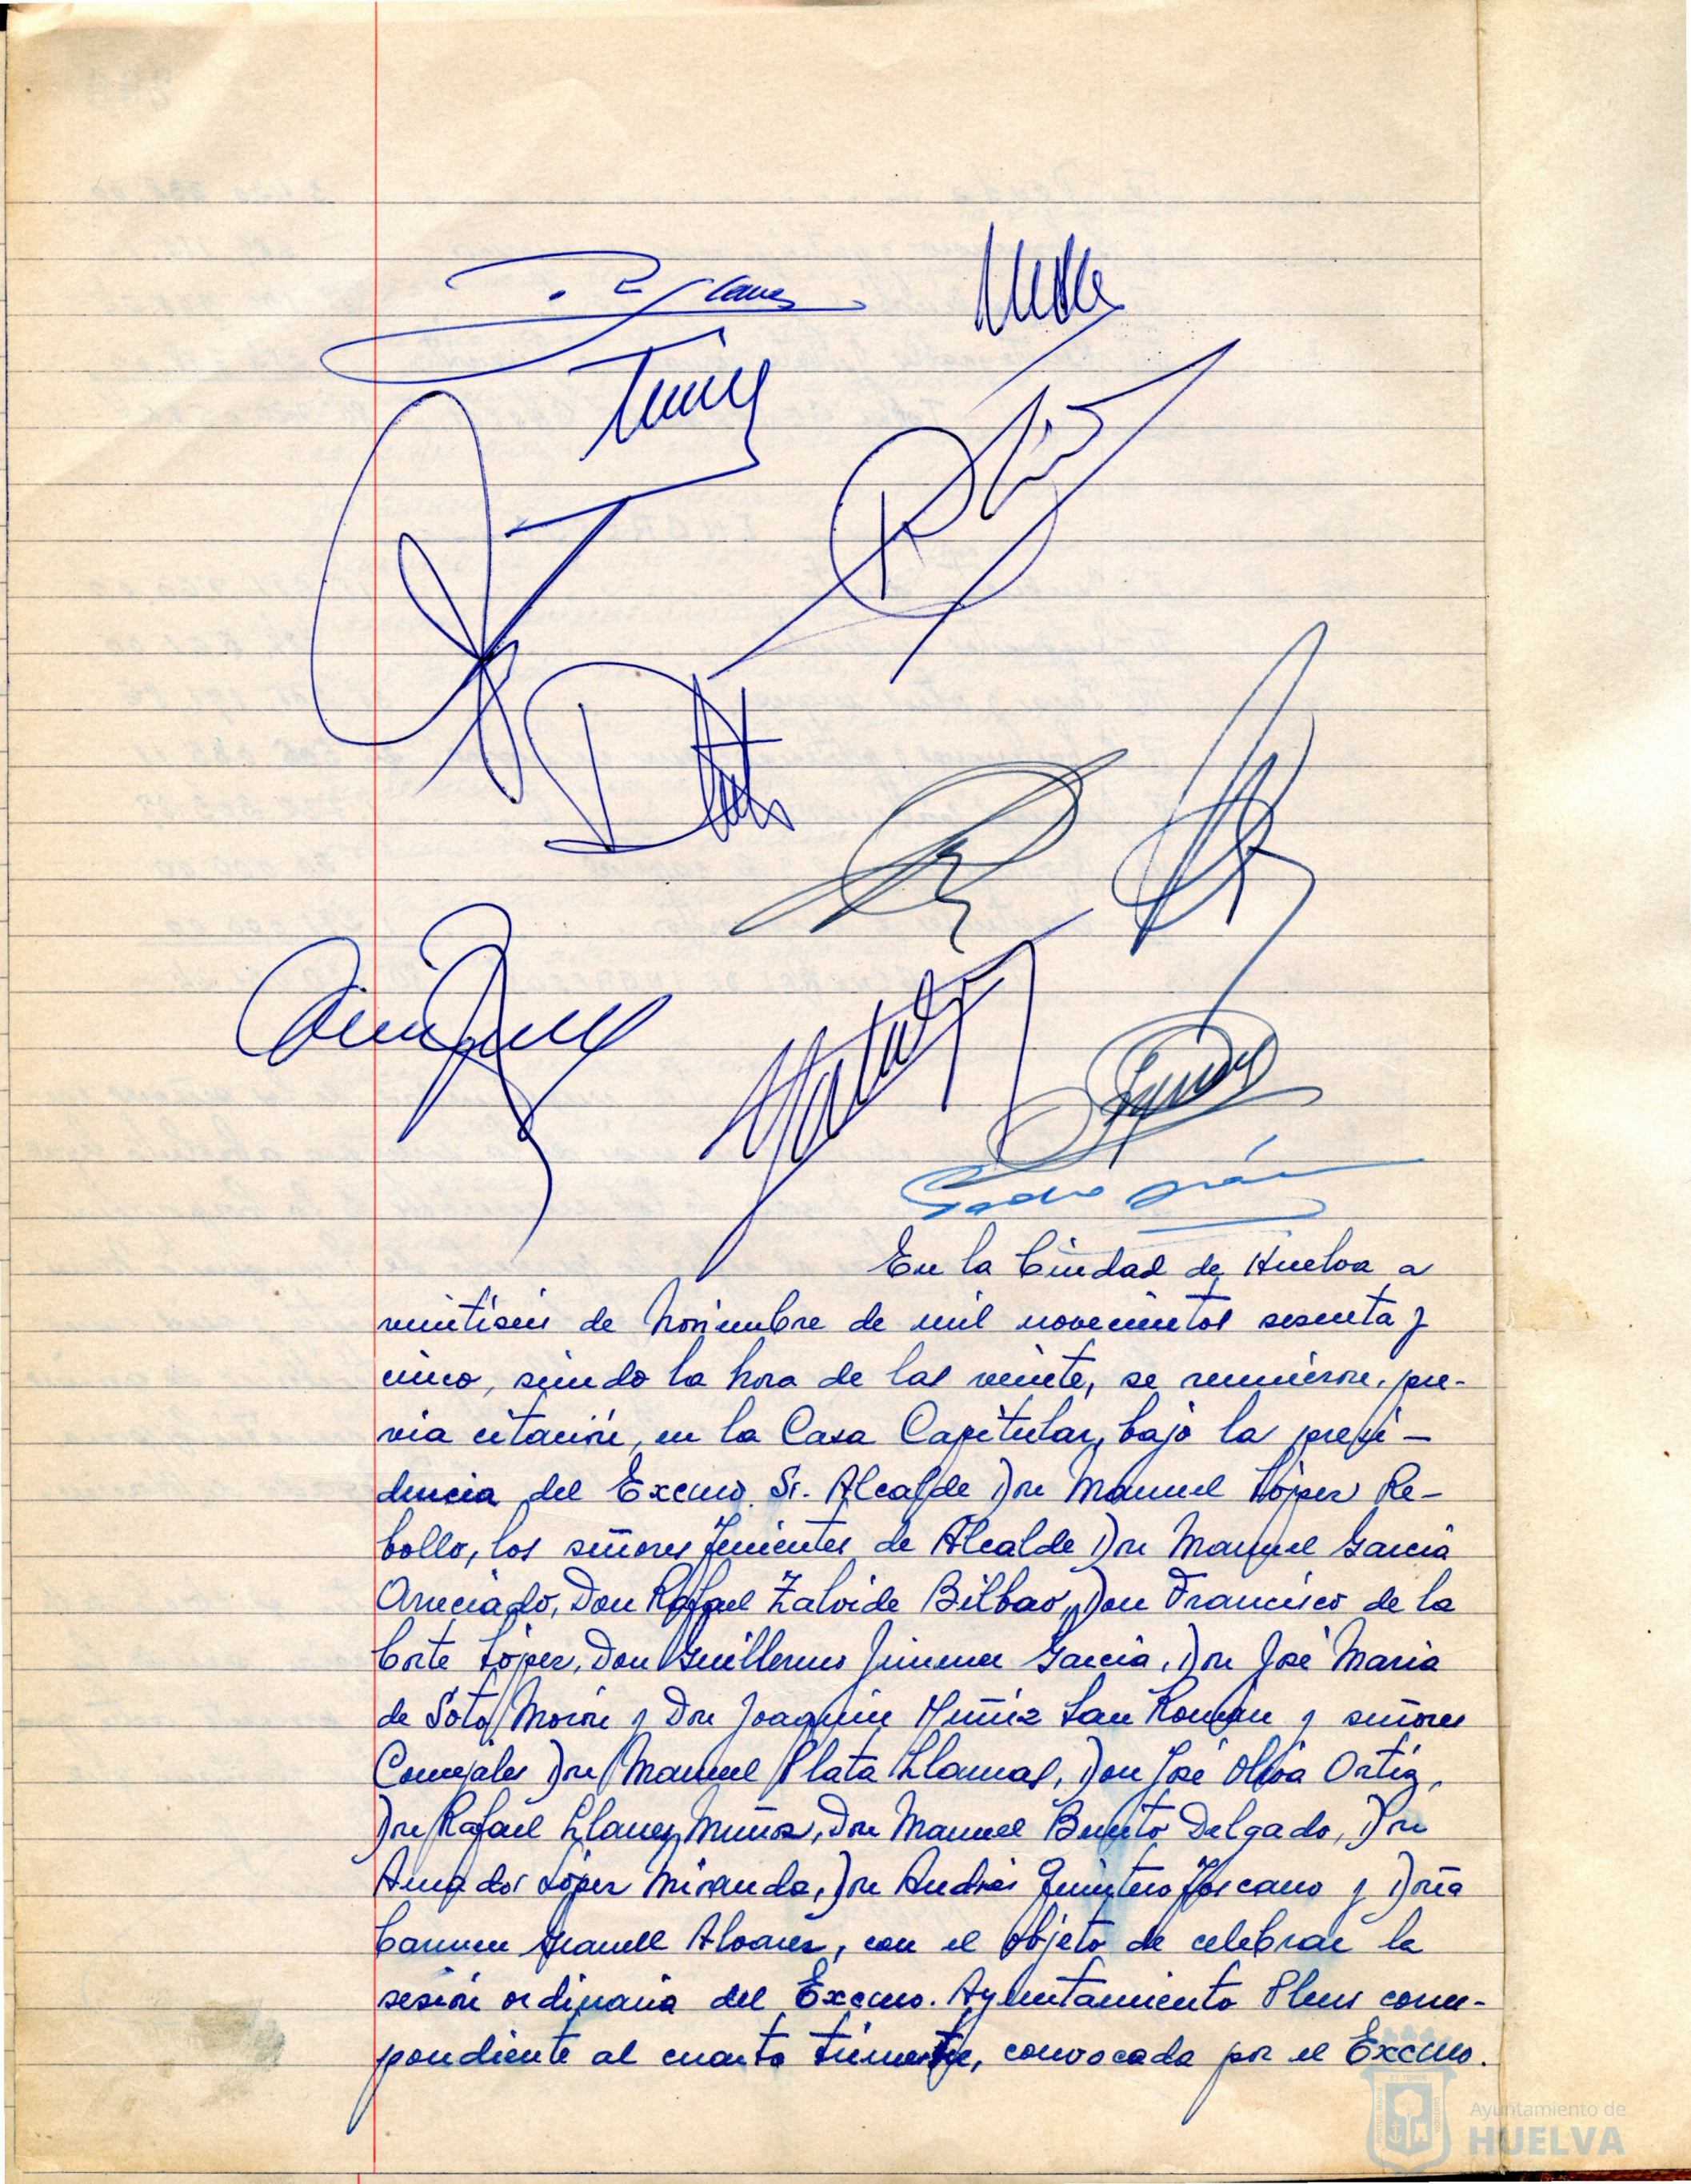 En la Ciudad de Huelva a
veintiseis de Noviembre de mil novecientos sesenta y
cinco, siendo la hora de las veinte, se reunieron, pre-
via citación, en la Casa Capitular, bajo la presi-
dencia del Excmo. Sr. Alcalde Don Manuel López Re-
bollo, los señores Tenientes de Alcalde Don Manuel García
Don Rafael Zalvide Bilbao, Don Francisco de la
Corte López, Don Guillermo Jimenez García, Don José María
de Soto Morón y Don Joaquin Muñiz San Román y señores
Concejales Don Manuel Plata Llamas, Don José Oliva Ortiz,
Don Rafael Llanes Muñoz, Don Manuel Benito Delgado, Don
Amador López Miranda, Don Andrés Quintero Toscano y Doña
Carmen Granell Alvarez, con el objeto de celebrar la
sesión ordinaria del Excmo. Ayuntamiento Pleno corres-
pondiente al cuarto trimestre, convocada por el Excmo.
Ayuntamiento de
HUELVA